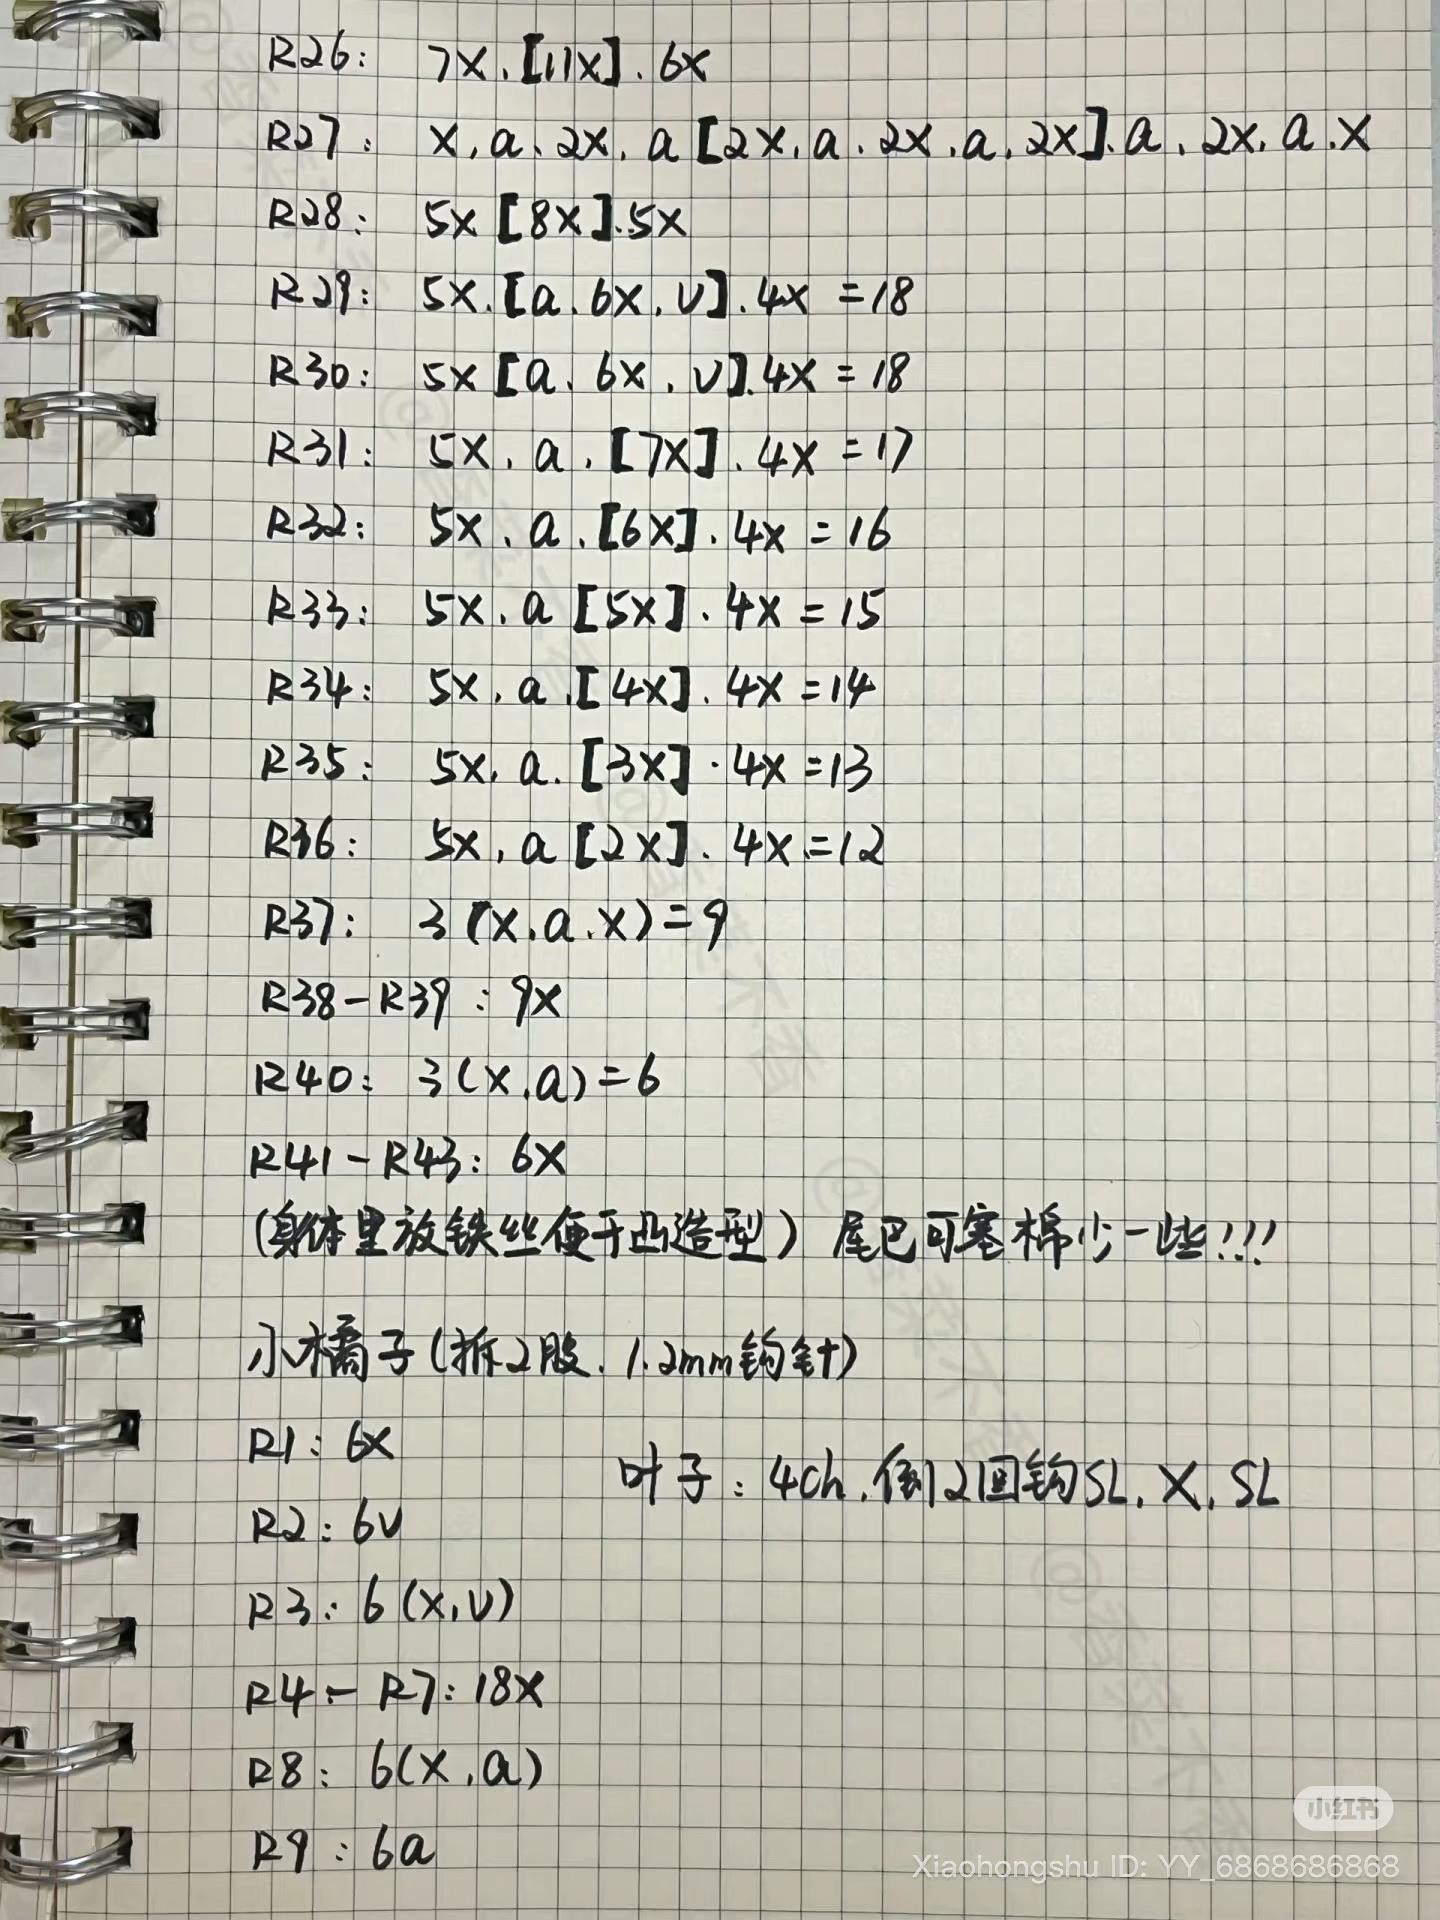 R26: 7X.[11X].6X
R27: X.a.2X.a[2X.a.2X.a.2X].a.2X.a.X
R28: 5X[8X].5X
R29: 5X.[a.6X.V].4X=18
R30: 5X[a.6X.V].4X=18
R31: 5X.a.[7X].4X=17
R32: 5X.a.[6X].4X=16
R33: 5X.a[5X].4X=15
R34: 5X.a.[4X].4X=14
R35: 5X.a.[3X].4X=13
R36: 5X.a[2X].4X=12
R37: 3(X.a.X)=9
R38-R39: 9X
R40: 3(X.a)=6
R41-R43: 6X
(身体里放铁丝便于凹造型) 尾巴可塞棉少一些!!!
小橘子(拆2股.1.2mm钩针)
R1: 6X
叶子: 4ch.倒2回钩SL.X.SL
R2: 6V
R3: 6(X.V)
R4-R7: 18X
R8: 6(X.a)
R9: 6a
小红书
Xiaohongshu ID: YY_6868686868